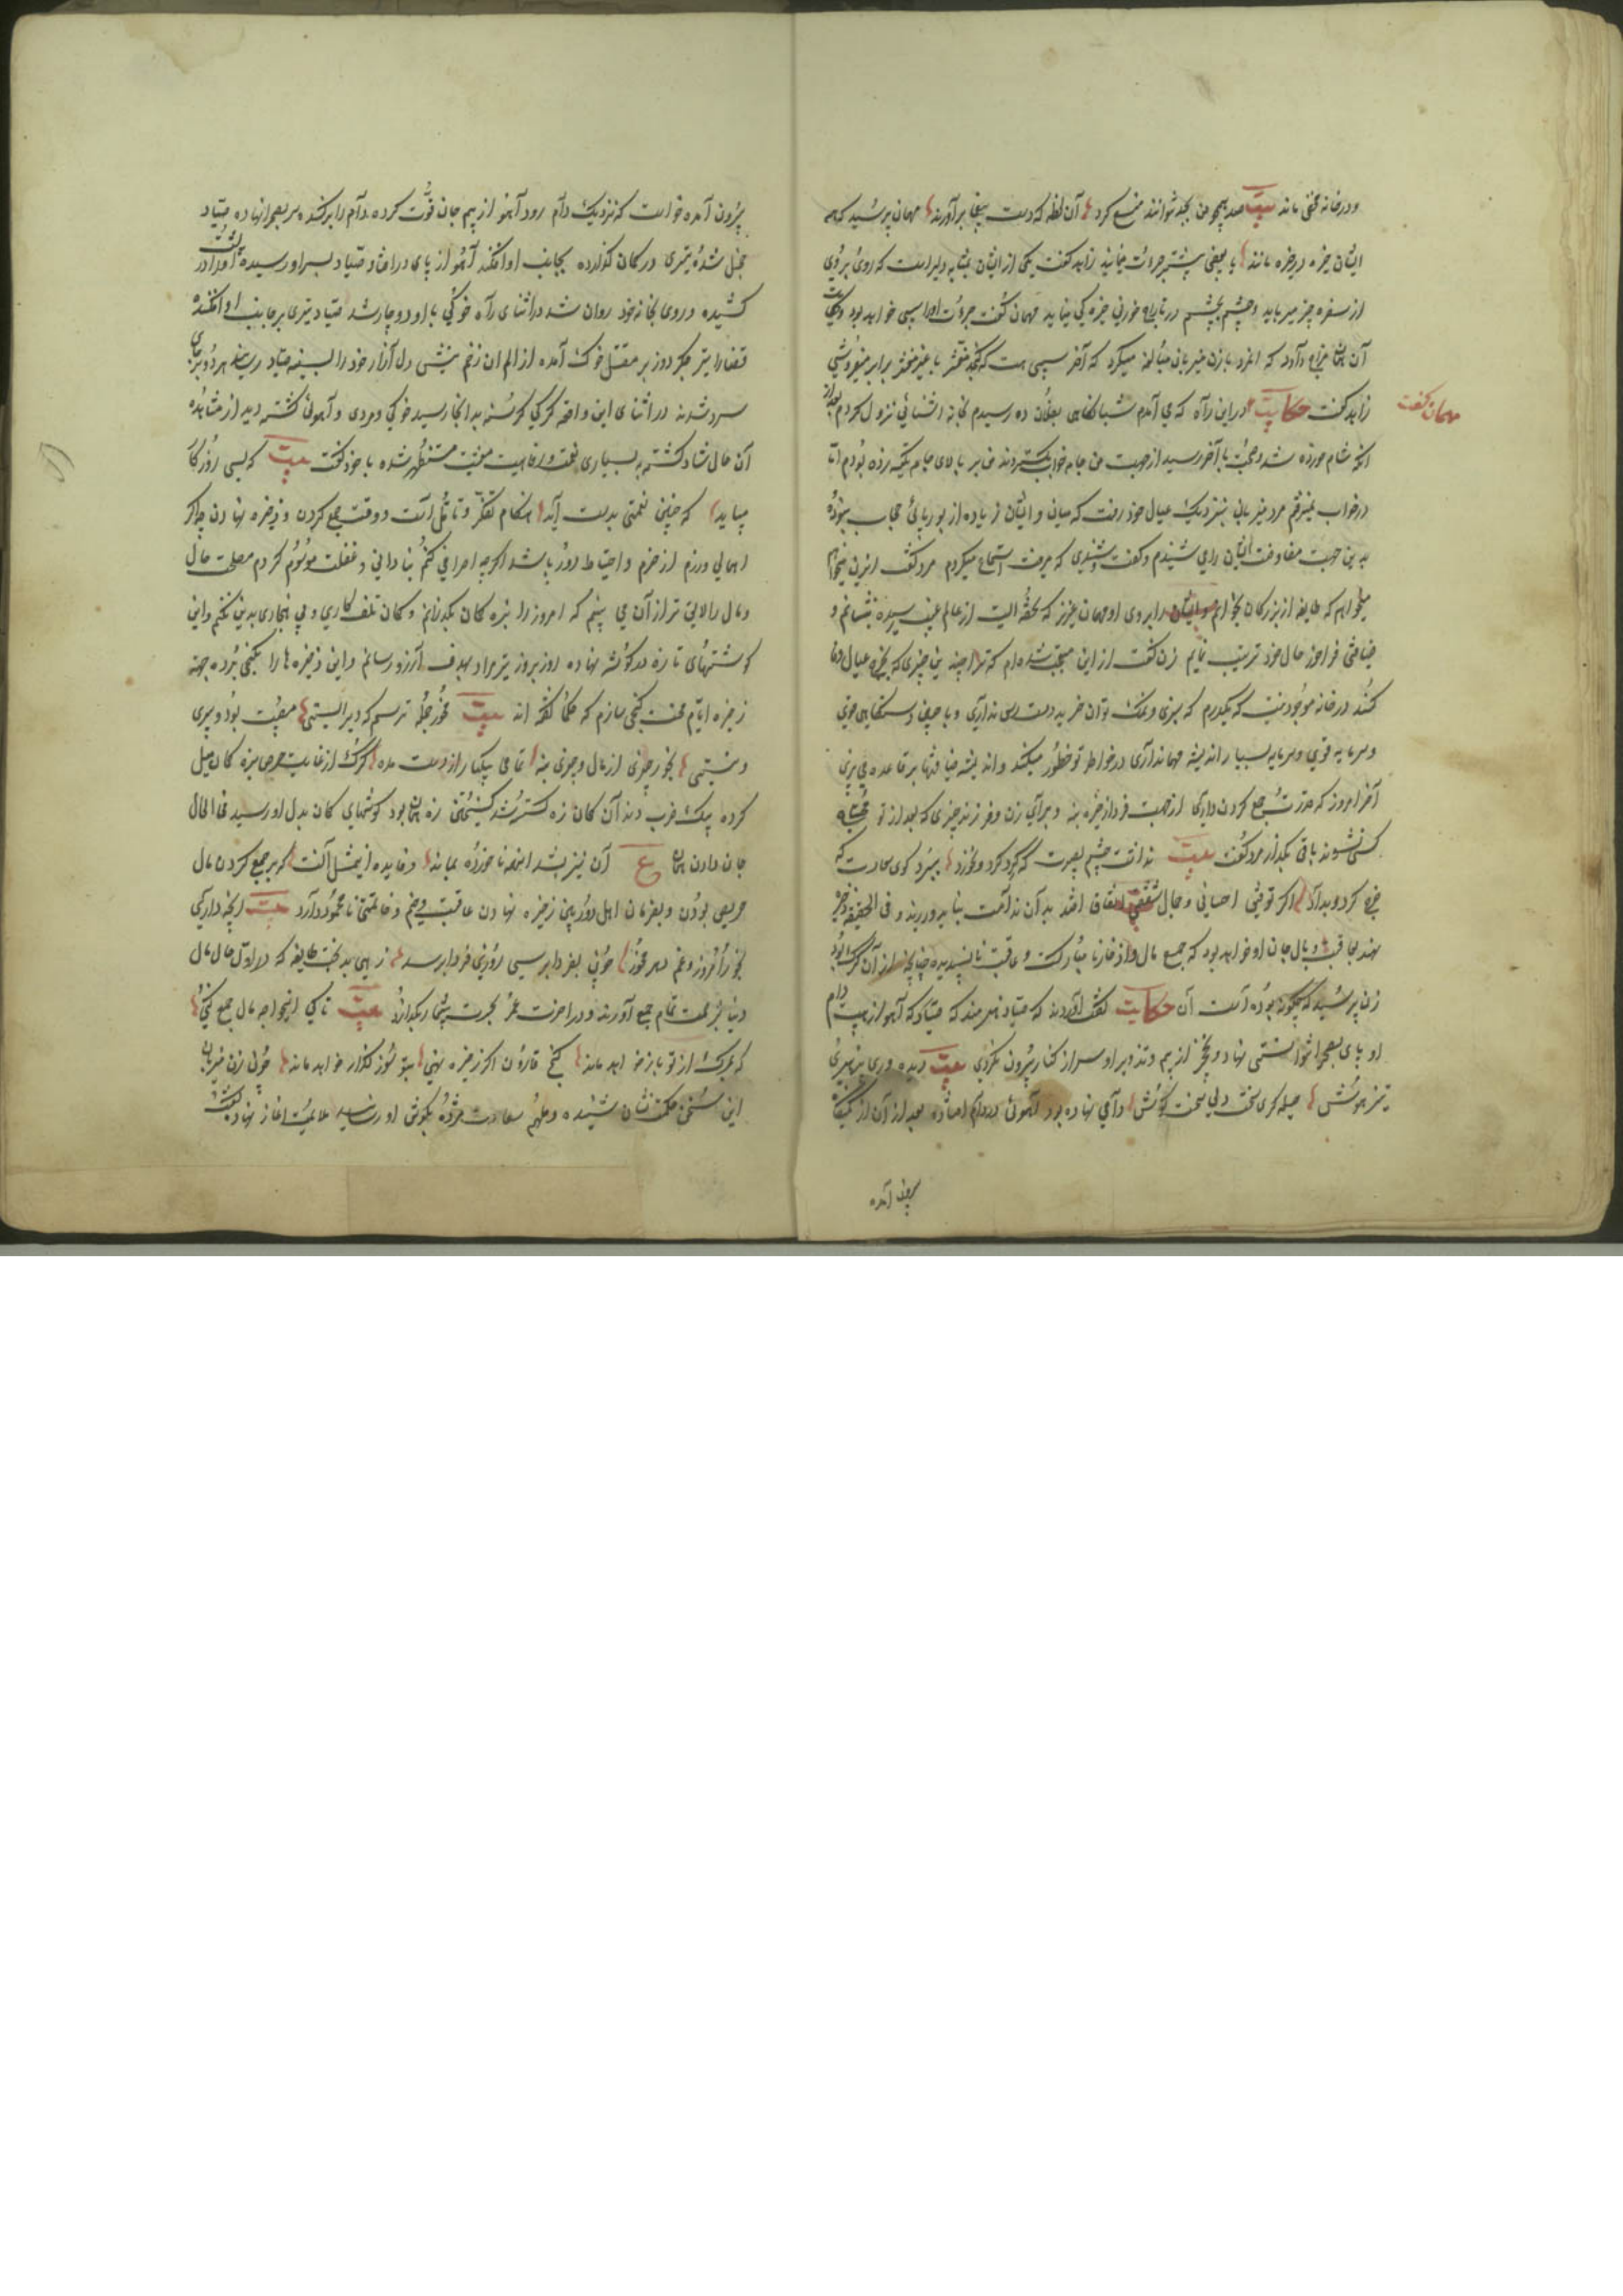 و در خانه مخفی ماند بیت صد همچو من بجد نتوانند منع کرد آن لحظه که دست بیغما برآورند مهمان پرسید که همه
ایشان خیره در چیزه مانند یا بعضی بیشتر جرأت مینمایند زاهد گفت یکی از ایشان بمثابه دلیر است که روی بروی
از سفره چیز میرباید و چشم بچشم در تاراج خوردنی خیره‌گی مینماید مهمان گفت جرأت او را سببی خواهد بود و حکایت
آن مزاج دارد که آنمرد با زن میزبان مبالغه میکرد که آخر سببی هست که کنجد مقشر با غیر مقشر برابر میفروشی
زاهد گفت حکایت در این راه که می آمدم شبانگاهی بفلان ده رسیدم بخانه آشنائی نزول کردم بعد از
مهمان گفت
آنکه شام خورده شد و صحبت بآخر رسید از جهت من جامه خواب بگستردند من بر بالای جامه تکیه زده بودم اما
در خواب نمیرفتم مرد میزبان بنزدیک عیال خود رفت که میان من و ایشان زیاده از بوریائی حجاب نبوده
بدین جهت مفاوضت ایشان را می شنیدم و گفت و شنیدی که میرفت استماع میکردم مرد گفت ای زن میخواهم
میخواهم که طایفه از بزرگان بخوانم و ایشان را بروی او مهمان عزیز که تحفه ایست از عالم غیب رسیده بنشانم و
ضیافتی فراخور حال خود ترتیب نمایم زن گفت از این متعجب شده‌ام که ترا چند نین چیزی که بخرج عیال وفا
کند در خانه موجود نیست که یکدرم که سبزی و نمک توان خرید دست رس نداری و با چنین دستگاهی قوی
و سرمایه قوی و سرمایه بسیار اندیشه مهمانداری در خاطر تو خطور میکند و اندیشه ضیافتها بر قاعده می پزی
آخر امروز که قدرت جمع کردن داری از جهت فردا ذخیره بنه و برای زن و فرزند چیزی که بعد از تو محتاج
کسی نشوند باقی بگذار مرد گفت بیت ندانست چشم بصیرت که گرد کرد و نخورد ببرد گوی سعادت که
خرج کرد و بداد اگر توفیق احسانی و مجال شفقتی اتفاق افتد بدان ندامت نباید ورزید و فی الحقیقه ذخیره
نهند بعاقبت وبال جان او خواهد بود که جمع مال و ادخار نا مبارکست و عاقبت ناپسندیده چنانچه از آن گرگ بود
زن پرسید که چگونه بوده است آن حکایت گفت آورده‌اند که صیاد هنرمند که صیاد که آهو از هیبت دام
او پای بصحرا نتوانستی نهاد و نخجیر از بیم و تدبیر او سر از کنار بیرون نکردی بیت دیده وری پر هنری
تیز هوش حیله گری سخت دلی سخت کوش دامی نهاده بود آهوئی در دام افتاده بعد از آن از کمینگاه
بیرون آمده
بیرون آمده خواست که نزدیک دام رود آهو از بیم جان قوت کرده دام را برکند و سر بصحرا نهاده صیاد
خجل شده تیری در کمان گذارده بجانب او افکند آهو از پای در افتاد و صیاد بسر او رسیده پشت او را در
کشیده و روی بخانه خود روان شد در اثنای راه خوکی با او دوچار شد صیاد تیری بر جانب او افکنده
قضا را تیر جگر دوز بر مقتل خوک آمده از الم آن زخم نیشی دل آزار خود را بسینه صیاد رسید هر دو بر جای
سرد شدند در اثنای این واقعه گرگی گرسنه بدانجا رسید خوکی و مردی و آهوئی کشته دید از مشاهده
آن حال شاد گشته به بسیاری نعمت و رفاهیت معیشت مستظهر شده با خود گفت بیت که بسی روزگار
میباید که چنین نعمتی بدست آید هنگام تفکر و تأمل است و وقت جمع کردن و ذخیره نهادن چه اگر
اهمالی ورزم از حزم و احتیاط دور باشد اگر چه اسرافی کنم بنادانی و غفلت موسوم گردم مصلحت حال
و مال را لایق تر از آن می بینم که امروز را بزه کمان بگذرانم و کمان تلف کاری و بی هنجاری بدین نکنم و این
گوشتهای تازه در گوشه نهاده روز بروز تیر مراد بهدف آرزو رسانم و این ذخیره ها را بکنجی برده جهة
زخیره ایام محنت گنجی سازم که حکما گفته اند بیت مخور جمله ترسم که دیر ایستی مصیبت بود پیری
و نیستی بخور چیزی از مال و چیزی بنه تمامی بیکبار از دست مده گرگ از غایت حرص بزه کمان میل
کرده بیک ضرب دندان کمان زه گسسته شد گسیختن زه همان بود گوشهای کمان بدل او رسید فی الحال
جان دادن همان ع آن نیز بشد اینهمه ناخورده بماند و فایده از این مثل آنست که بر جمع کردن مال
حریص بودن و بفرمان امل دور پایان زخیره نهادن عاقبت وخیم و خاتمتی نا محمود دارد بیت آنچه داری
بخور امروز و غم دهر مخور چون بفردا برسی روزی فردا برسد زهی بدبخت طایفه که در اول حال مال
دنیا بزحمت تمام جمع آورند و در آخرت عمر بحسرت بیشمار بگذارند بیت تا کی ای خواجه مال جمع کنی
که مرگ از تو باز خواهد ماند گنج قارون اگر زخیره نهی بتو سوز گذار خواهد ماند چون زن میزبان
این سخن حکمت نشان شنیده و ملهم سعادت مژده بگوش او رسانید ملایمت آغاز نهاده گفت